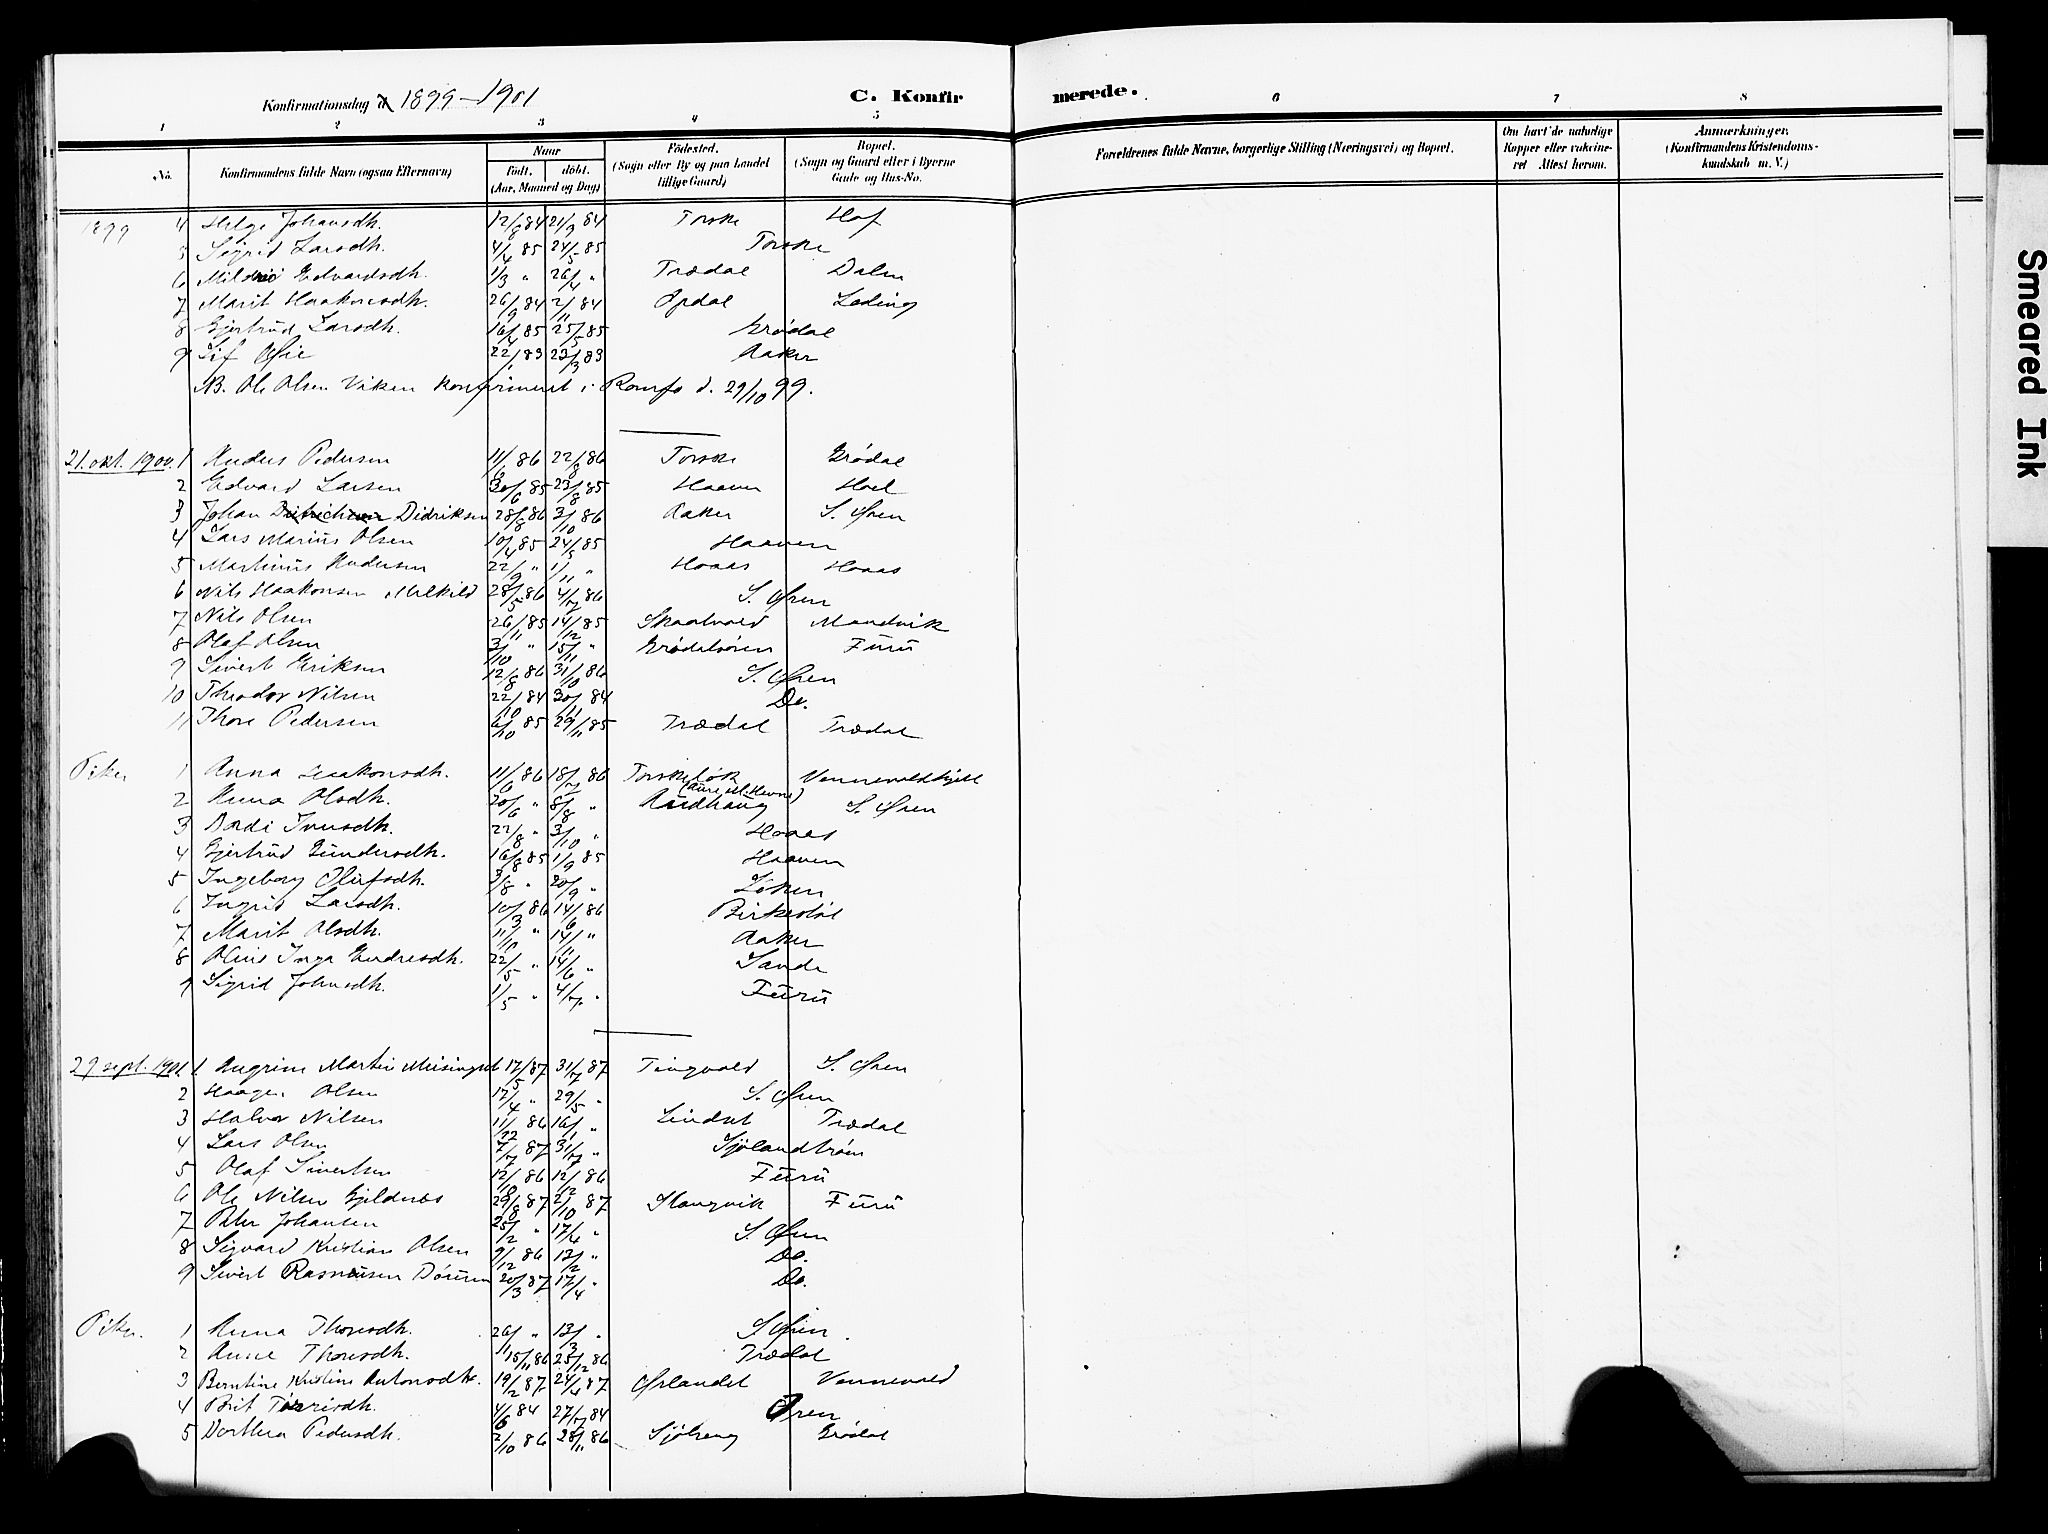 Konfirmationsdag d 1899-1901
C. Konfir merede.
1 2 3 4 5 6 7 8
No. Konfirmandens fulde Navn (ogsaa Efternavn) Naar Født. døbt. (Aar, Maaned og Dag) Fødested. (Sogn eller By og paa Landet tillige Gaard) Bopæl. (Sogn og Gaard eller i Byerne Gade og Hus-No. Forældrenes fulde Navne, borgerlige Stilling (Næringsvei) og Bopæl. Om havt de naturlige Kopper eller vakcineret Attest herom. Anmærkninger. (Konfirmandens Kristendomskundskab m. V.)
1899 4 Helge Johansdh. 12/8 84 21/9 84 Torske Hof
5 Sigrid Larsdh. 4/4 85 24/5 85 Torske
6 Edvardsdh. 1/3 " 26/4 " Trædal Dalen
7 Marit Haakonsdh. 26/9 84 2/11 84 Opdal Leding
8 Gjertrud Larsdh. 16/4 85 25/5 85 Grødal
9 Sif Øie 22/1 83 23/3 83 Aaker
NB. Ole Olsen Viken konfirmeret i Romfo d. 29/10 99.
21. okt. 1900. 1 Anders Pedersen 11/6 86 22/8 86 Torske Grødal
2 Edvard Larsen 30/6 85 23/8 85 Haaven Hoel
3 Johan Didrichsen Didriksen 28/8 86 3/10 86 Aaker S. Øren
4 Lars Marius Olsen 10/4 85 24/5 85 Haaven
5 Martinus Andersen 22/9 " 1/11 " Hoaas Hoaas
6 Nils Haakonsen Melkild 28/5 86 4/7 86 S. Øren
7 Nils Olsen 26/11 85 14/12 85 Skaalvold Mandvik
8 Olaf Olsen 3/10 " 15/11 " Grødelsøren Furu
9 Sivert Eriksen 12/8 86 31/10 86 S. Øren
10 Theodor Nilsen 22/10 84 30/11 84 Do.
11 Thore Pedersen 6/10 85 29/11 85 Trædal Trædal
Piker 1 Anna Haakonsdh. 11/6 86 18/7 86 Torskeløk Vennevoldhjell
2 Anna Olsdh. 20/6 " 8/8 " Rudhaug S. Øren
3 Bordi Iversdh. 22/8 " 3/10 " Hoaas
4 Gjertrud Gundersdh. 16/8 85 1/9 85 Haaven
5 Ingeborg Olufsdh. 3/8 " 20/9 " Løken
6 Ingrid Larsdh. 10/3 86 14/6 86 Birkestøl
7 Marit Olsdh. 11/10 " 14/11 " Aaker
8 Oline Inga Endresdh. 22/5 " 14/6 " Sande
9 Sigrid Johnsdh. 1/5 " 4/7 " Furu
29 sept. 1901. 1 Angrim Martin Meisingset 17/5 87 31/7 87 Tingvold S. Øren
2 Haagen Olsen 17/4 " 29/5 " S. Øren
3 Halvor Nilsen 11/12 86 16/1 " Lindset Trædal
4 Lars Olsen 7/7 87 31/7 " Sjølandtrøen
5 Olaf Sivertsen 12/10 86 12/12 86 Furu
6 Ole Nilsen Gjeldnæs 29/8 87 2/10 87 Stangvik Furu
7 Peter Johansen 25/2 " 17/4 " S. Øren
8 Sigvard Kristian Olsen 9/12 86 13/2 " Do.
9 Sivert Rasmusen Dørum 20/3 87 17/4 " Do.
Piker. 1 Anna Thoresdh. 26/1 " 13/3 " S. Øren
2 Anne Thoresdh. 15/11 86 25/12 86 Trædal
3 Berntine Kristine Antonsdh. 19/2 87 24/4 87 Ørlandet Vennevold
4 Brit Torrisdh. 4/6 84 27/7 84 Øren
5 Dorthea Pedersdh. 2/10 86 28/11 86 Sjøhaug Grødal
Smeared Ink